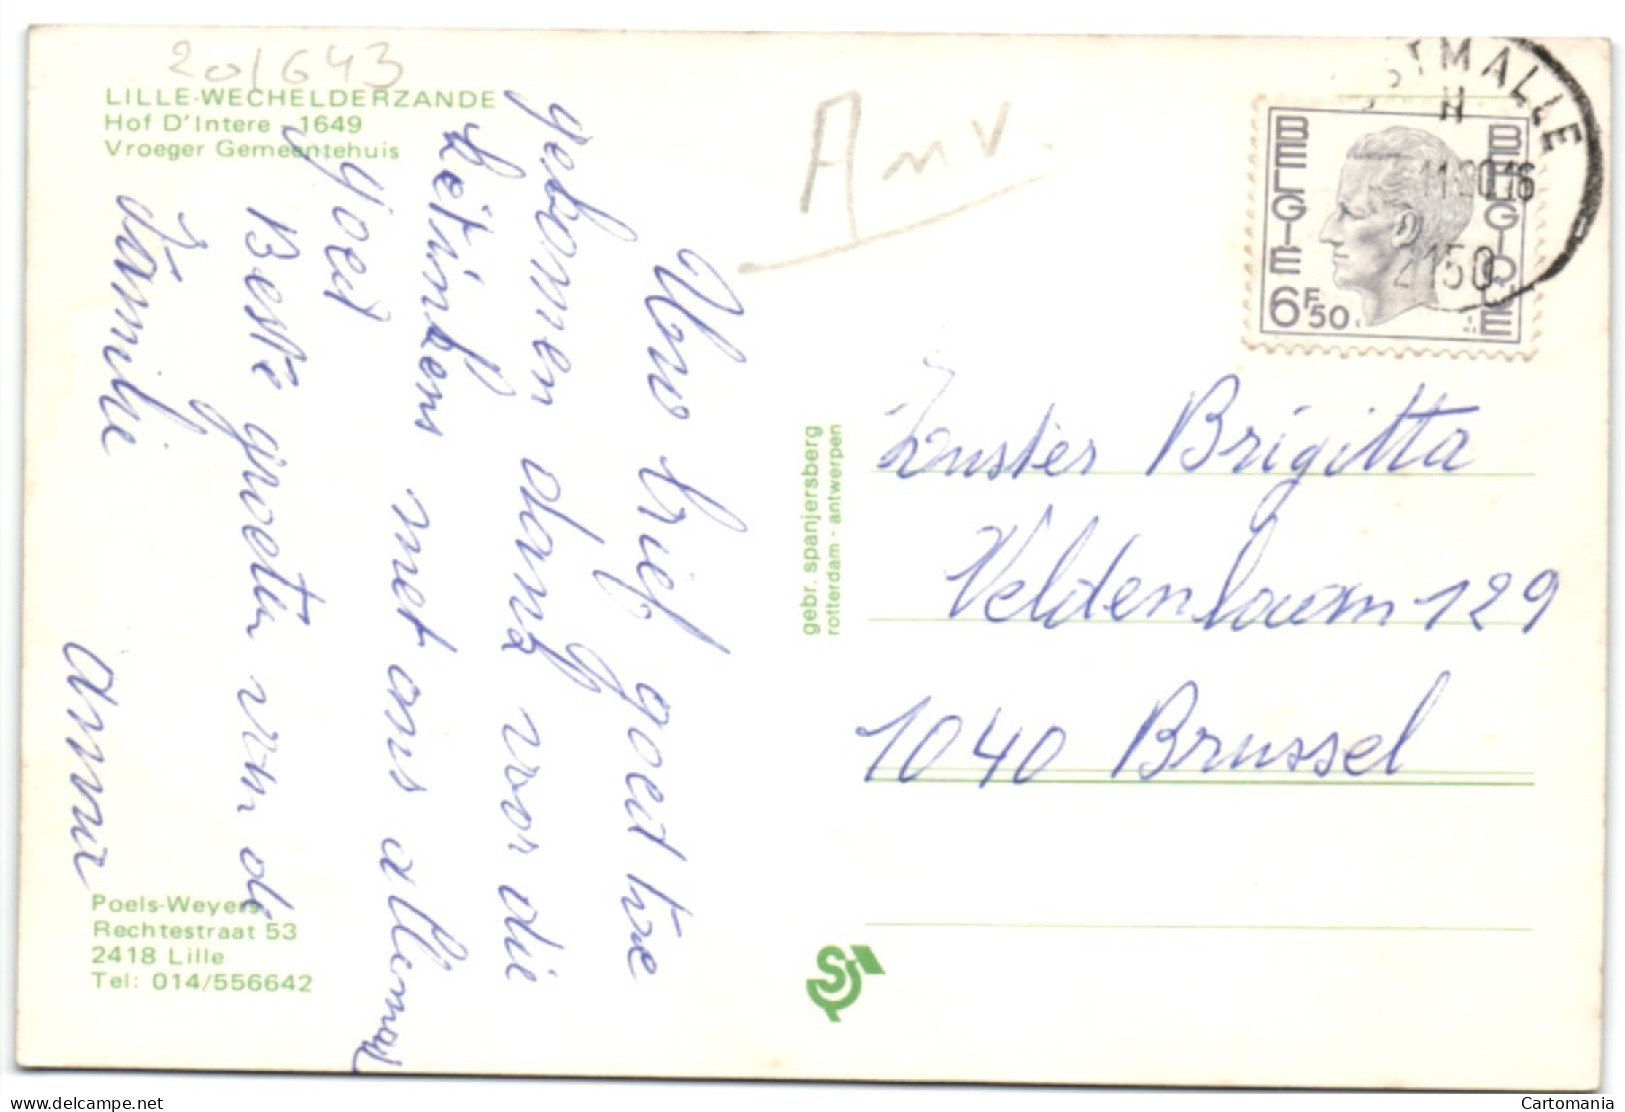 201643
LILLE-WECHELDERZANDE
Hof D'Intere - 1649
Vroeger Gemeentehuis
Uw brief goed toe
gekomen dank voor die
met ons allemaal
goed
Beste groeten van de
familie
Anna
Poels-Weyers
Rechtestraat 53
2418 Lille
Tel: 014/556642
gebr. spanjersberg
rotterdam - antwerpen
Anv.
STMALLE
H
2150
BELGIE
BELGIQUE
6F50
Zuster Brigitta
Veldenlaan 129
1040 Brussel
S
delcampe.net
Cartomania